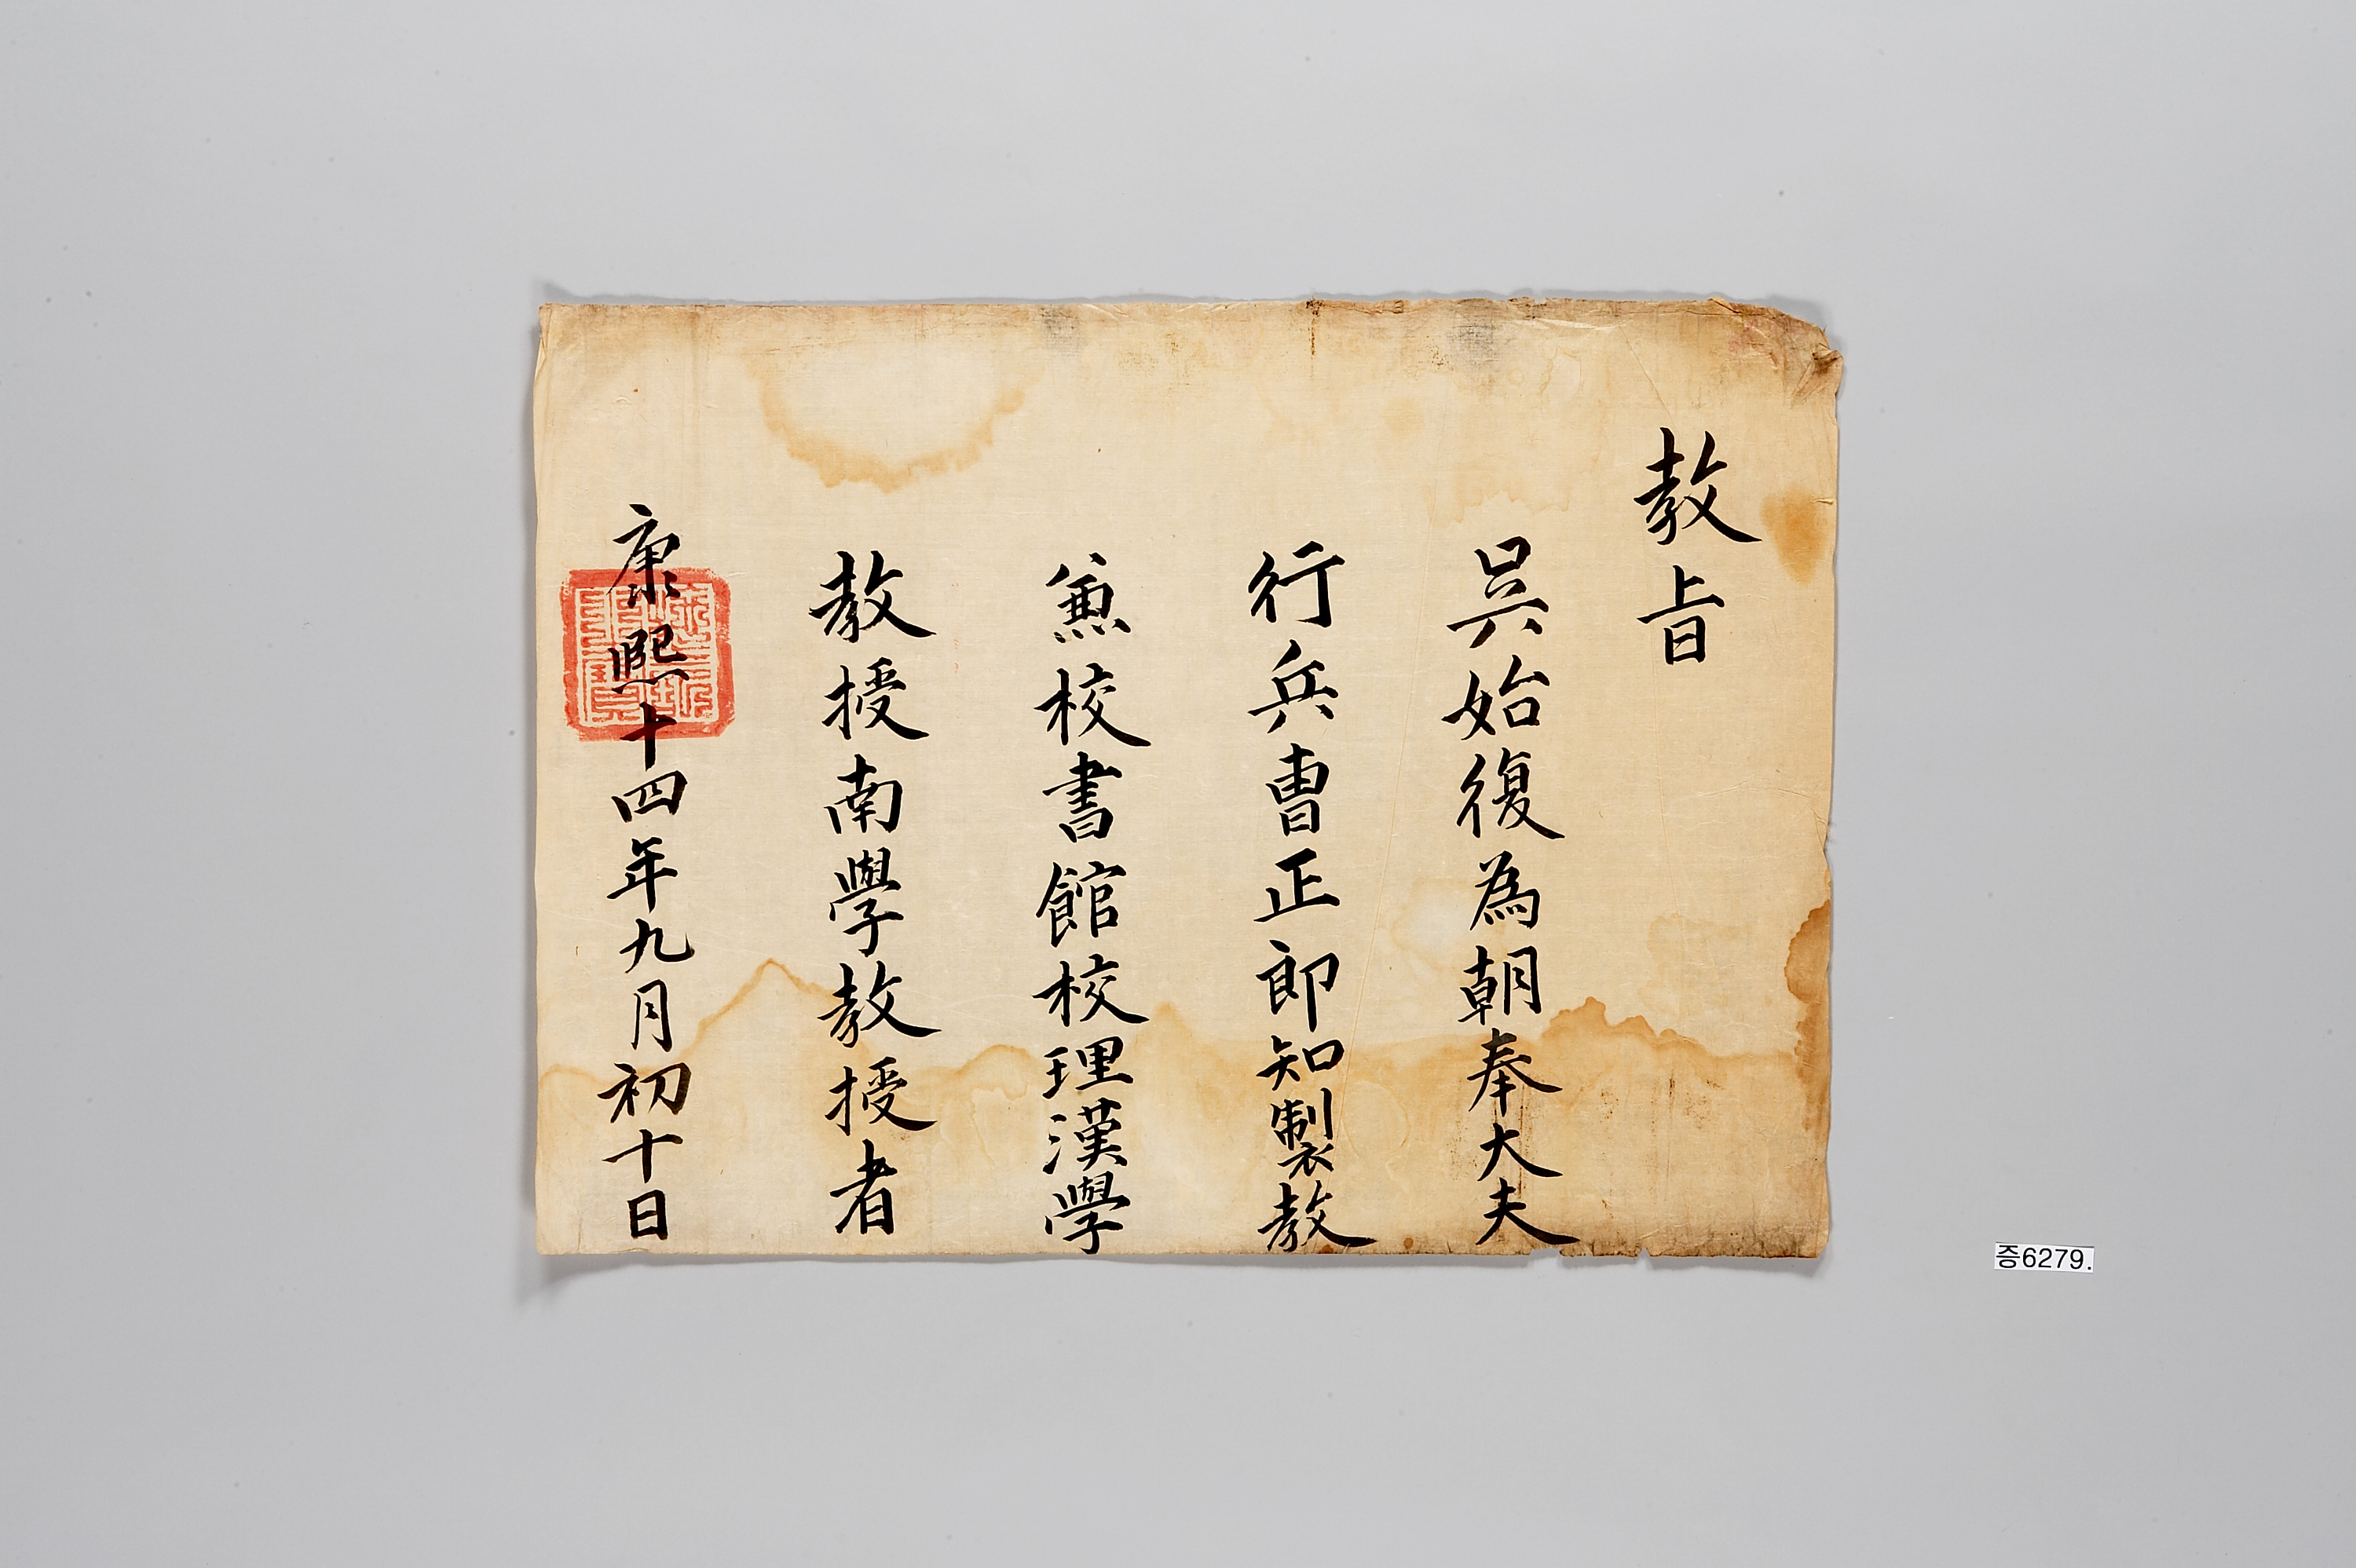 敎旨
吳始復為朝奉大夫
行兵曹正郎知製敎
兼校書館校理漢學
敎授南學敎授者
康熙十四年九月初十日
증6279.